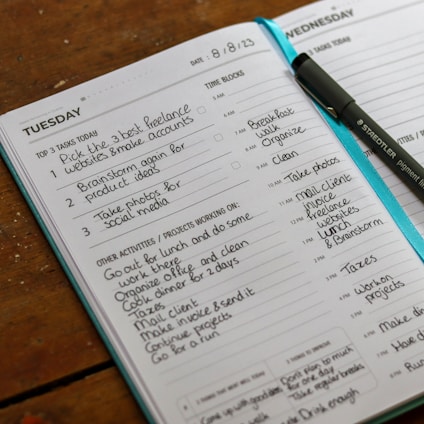 TUESDAY
DATE : 8/8/23
TOP 3 TASKS TODAY
1 Pick the 3 best freelance
websites & make accounts
2 Brainstorm again for
product ideas
3 Take photos for
social media
OTHER ACTIVITIES / PROJECTS WORKING ON:
Go out for lunch and do some
work there
Organize office and clean
Cook dinner for 2 days
Taxes
Mail client
Make invoice & send it
Continue projects
Go for a run
TIME BLOCKS
5 AM
6 AM
7 AM Breakfast
walk
8 AM Organize
9 AM clean
10 AM Take photos
11 AM mail clients
invoice
12 PM freelance
websites
1 PM Lunch
& Brainstorm
3 PM Taxes
4 PM work on
projects
6 PM Make din
Have di
Run
3 THINGS THAT WENT WELL TODAY
Come up with good
walk
3 THINGS TO IMPROVE
Don't plan to much
for one day
Take regular breaks
Drink enough
WEDNESDAY
3 TASKS TODAY
STAEDTLER
pigment lin